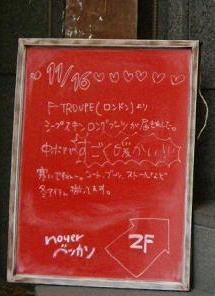 11/16 ♡♡♡♡♡♡
F-TROUPE(ロンドン)より
シープスキンロングブーツが届きました。
中ボアですごく暖かい!!
寒いですねー。コート、ブーツ、ストールなど
冬アイテム揃ってます。
noyer
ベッカン
2F